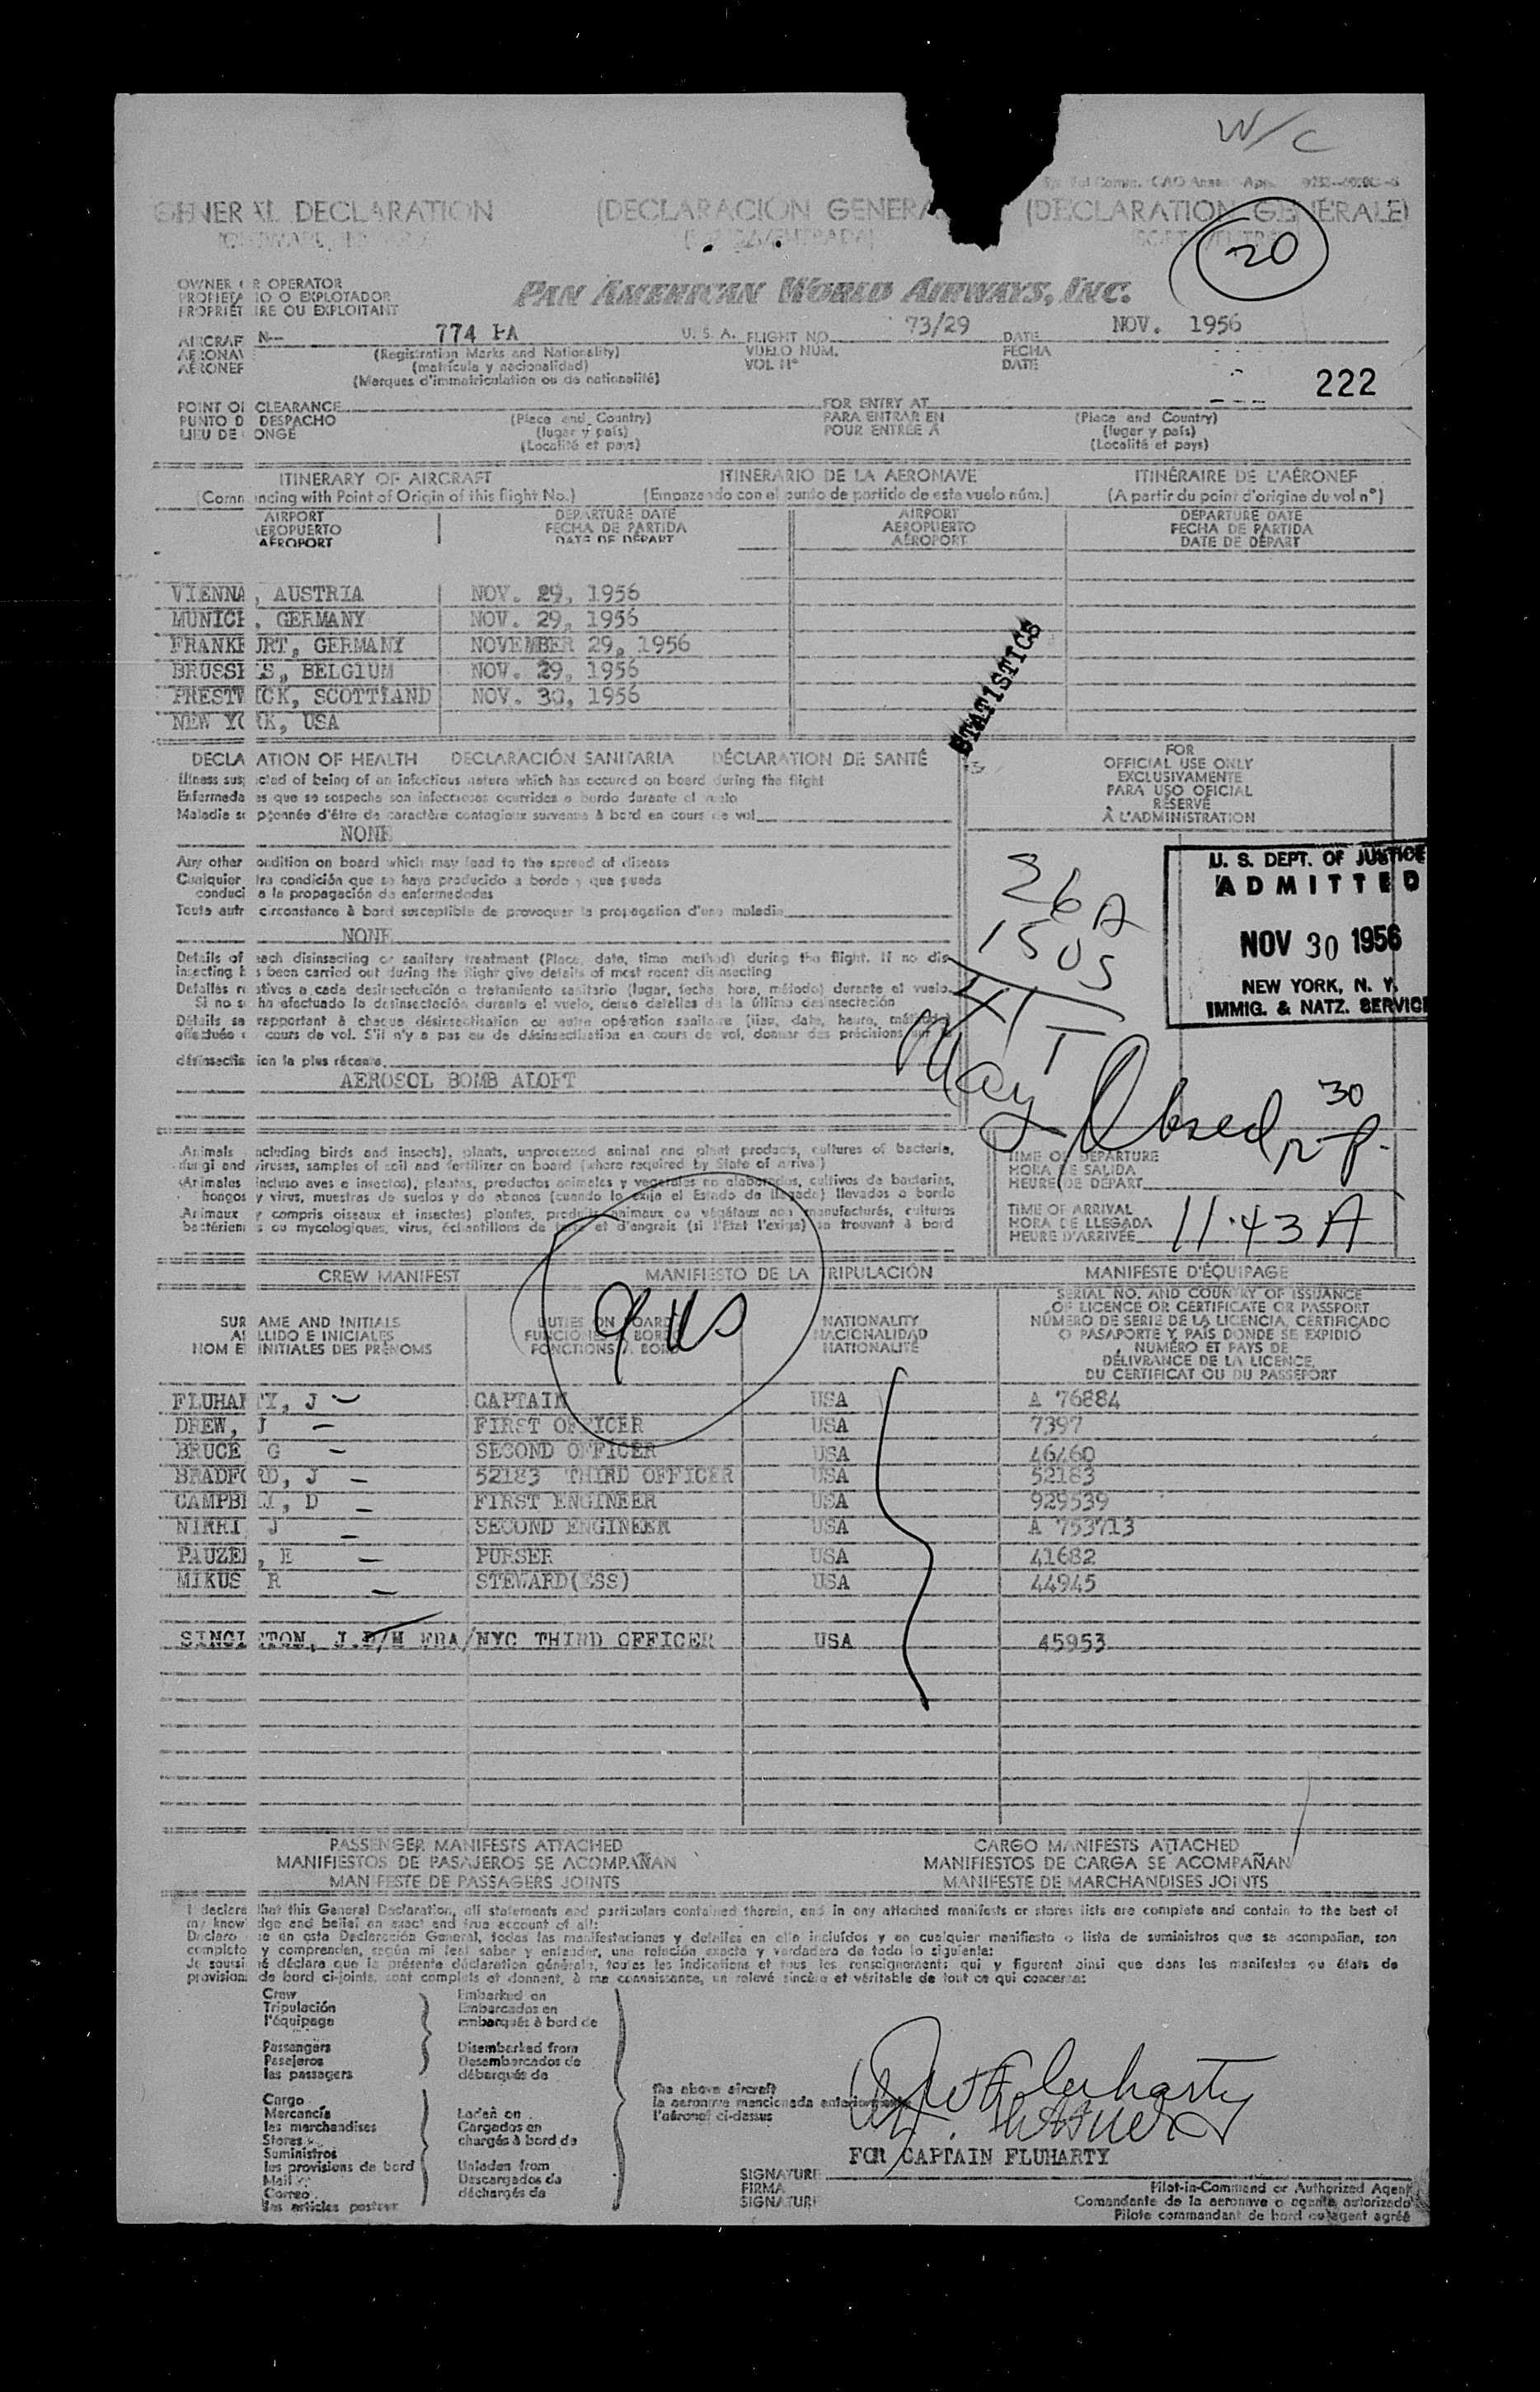 W/C
GENERAL DECLARATION (DECLARACIÓN GENERA (DECLARATION GÉNÉRALE)
20
OWNER R OPERATOR
PROPIETA IO O EXPLOTADOR
PROPRIÉT IRE OU EXPLOITANT
PAN AMERICAN WORLD AIRWAYS, INC.
AIRCRAF N-- 774 PA U. S. A. FLIGHT NO. 73/29 DATE NOV. 1956
AERONAV (Registration Marks and Nationality) VUELO NÚM. FECHA
AÉRONEF (matrícula y nacionalidad) VOL Nº DATE
(Marques d'immatriculation ou de nationalité)
222
POINT OF CLEARANCE FOR ENTRY AT
PUNTO D DESPACHO (Place and Country) PARA ENTRAR EN (Place and Country)
LIEU DE ONGÉ (lugar y país) POUR ENTRÉE À (lugar y país)
(Localité et pays) (Localité et pays)
ITINERARY OF AIRCRAFT ITINERARIO DE LA AERONAVE ITINÉRAIRE DE L'AÉRONEF
(Comm ncing with Point of Origin of this flight No.) (Empezando con el punto de partida de este vuelo núm.) (A partir du point d'origine du vol nº)
AIRPORT DEPARTURE DATE AIRPORT DEPARTURE DATE
AEROPUERTO FECHA DE PARTIDA AEROPUERTO FECHA DE PARTIDA
AÉROPORT DATE DE DÉPART AÉROPORT DATE DE DÉPART
VIENNA , AUSTRIA NOV. 29, 1956
MUNICH , GERMANY NOV. 29, 1956
FRANKF URT, GERMANY NOVEMBER 29, 1956
BRUSSE S, BELGIUM NOV. 29, 1956
PRESTW CK, SCOTTLAND NOV. 30, 1956
NEW YO K, USA
STATISTICS
DECLA ATION OF HEALTH DECLARACIÓN SANITARIA DÉCLARATION DE SANTÉ
Illness susp cted of being of an infectious nature which has occured on board during the flight
Enfermeda es que se sospecha son infecciosas ocurridas a bordo durante el vuelo
Maladie so pçonnée d'être de caractère contagieux survenue à bord en cours de vol
NONE
FOR
OFFICIAL USE ONLY
EXCLUSIVAMENTE
PARA USO OFICIAL
RÉSERVÉ
À L'ADMINISTRATION
Any other ondition on board which may lead to the spread of disease
Cualquier tra condición que se haya producido a bordo y que pueda
conduci a la propagación de enfermedades
Toute autr circonstance à bord susceptible de provoquer la propagation d'une maladie
NONE
26 A
15 US
41 T
U. S. DEPT. OF JUSTICE
ADMITTED
NOV 30 1956
NEW YORK, N. Y.
IMMIG. & NATZ. SERVICE
Details of each disinsecting or sanitary treatment (Place, date, time method) during the flight. If no dis-
insecting h s been carried out during the flight give details of most recent disinsecting
Detalles re ativos a cada desinsectación o tratamiento sanitario (lugar, fecha, hora, método) durante el vuelo.
Si no s ha efectuado la desinsectación durante el vuelo, dense detalles de la última desinsectación
Détails se rapportant à chaque désinsectisation ou autre opération sanitaire (lieu, date, heure, méthode)
effectuée cours de vol. S'il n'y a pas eu de désinsectisation en cours de vol, donner des précisions sur la
désinsectis ion la plus récente
AEROSOL BOMB ALOFT
30
Animals ncluding birds and insects), plants, unprocessed animal and plant products, cultures of bacteria,
fungi and viruses, samples of soil and fertilizer on board (where required by State of arrival)
Animales incluso aves e insectos), plantas, productos animales y vegetales no elaborados, cultivos de bacterias,
hongos y virus, muestras de suelos y de abonos (cuando lo exija el Estado de llegada) llevados a bordo
Animaux y compris oiseaux et insectes) plantes, produits animaux ou végétaux non manufacturés, cultures
bactérien s ou mycologiques, virus, échantillons de terre et d'engrais (si l'Etat l'exige) se trouvant à bord
TIME OF DEPARTURE
HORA DE SALIDA
HEURE DE DÉPART
TIME OF ARRIVAL
HORA DE LLEGADA
HEURE D'ARRIVÉE 11:43 A
CREW MANIFEST MANIFIESTO DE LA TRIPULACIÓN MANIFESTE D'ÉQUIPAGE
9 US
SUR AME AND INITIALS DUTIES ON BOARD NATIONALITY
A LLIDO E INICIALES FUNCIONES A BORDO NACIONALIDAD
NOM E INITIALES DES PRÉNOMS FONCTIONS À BORD NATIONALITÉ
SERIAL NO. AND COUNTRY OF ISSUANCE
OF LICENCE OR CERTIFICATE OR PASSPORT
NÚMERO DE SERIE DE LA LICENCIA, CERTIFICADO
O PASAPORTE Y PAÍS DONDE SE EXPIDIÓ
NUMÉRO ET PAYS DE
DÉLIVRANCE DE LA LICENCE,
DU CERTIFICAT OU DU PASSEPORT
FLUHAR TY, J CAPTAIN USA A 76884
DREW, J FIRST OFFICER USA 7397
BRUCE G SECOND OFFICER USA 46460
BRADFO RD, J 52183 THIRD OFFICER USA 52183
CAMPBE L, D FIRST ENGINEER USA 929539
NIRRI J SECOND ENGINEER USA A 753713
PAUZE , E PURSER USA 41682
MIKUS R STEWARD(ESS) USA 44945
SINGL TON, J.D/H FRA/NYC THIRD OFFICER USA 45953
PASSENGER MANIFESTS ATTACHED CARGO MANIFESTS ATTACHED
MANIFIESTOS DE PASAJEROS SE ACOMPAÑAN MANIFIESTOS DE CARGA SE ACOMPAÑAN
MANIFESTE DE PASSAGERS JOINTS MANIFESTE DE MARCHANDISES JOINTS
I declare that this General Declaration, all statements and particulars contained therein, and in any attached manifests or stores lists are complete and contain to the best of
my know dge and belief an exact and true account of all:
Declaro ue en esta Declaración General, todas las manifestaciones y detalles en ella incluídos y en cualquier manifiesto o lista de suministros que se acompañan, son
completo y comprenden, según mi leal saber y entender, una relación exacta y verdadera de todo lo siguiente:
Je soussi né déclare que la présente déclaration générale, toutes les indications et tous les renseignements qui y figurent ainsi que dans les manifestes ou états de
provisions de bord ci-joints, sont complets et donnent, à ma connaissance, un relevé sincère et véritable de tout ce qui concerne:
Crew Embarked on
Tripulación Embarcados en
l'équipage embarqués à bord de
Passengers Disembarked from
Pasajeros Desembarcados de
les passagers débarqués de
Cargo
Mercancía Laden on
les marchandises Cargados en
Stores chargés à bord de
Suministros
les provisions de bord Unladen from
Mail Descargados de
Correo déchargés de
les articles postaux
the above aircraft
la aeronave mencionada anteriormente
l'aéronef ci-dessus
FOR CAPTAIN FLUHARTY
SIGNATURE Pilot-in-Command or Authorized Agent
FIRMA Comandante de la aeronave o agente autorizado
SIGNATURE Pilote commandant de bord ou agent agréé